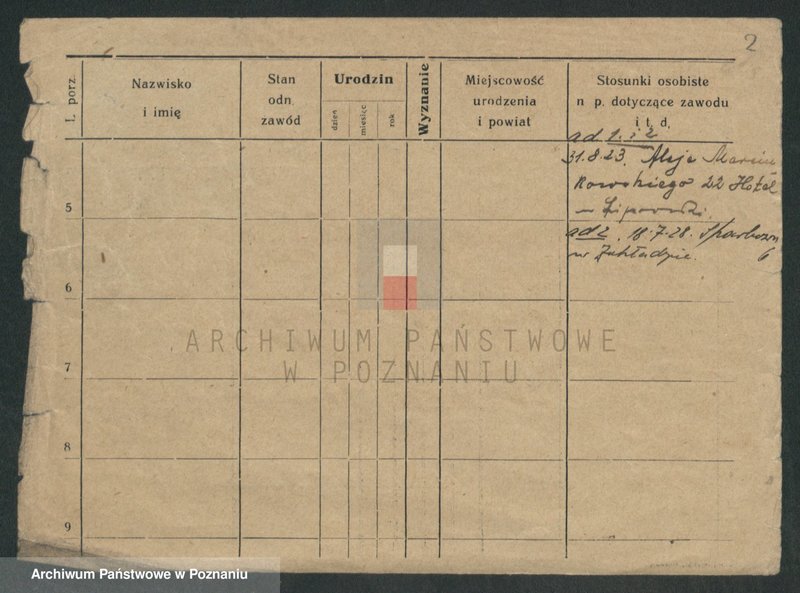 2
L. porz.
Nazwisko
i imię
Stan
odn.
zawód
Urodzin
dzień
miesiąc
rok
Wyznanie
Miejscowość
urodzenia
i powiat
Stosunki osobiste
n p. dotyczące zawodu
i t. d.
ad 1. i 2
31.8.23. Aleje Marcin
kowskiego 22 Hotel
5
ad 2. 18.7.28.
6
w Zakładzie.
6
ARCHIWUM PAŃSTWOWE
W POZNANIU
7
8
9
Archiwum Państwowe w Poznaniu